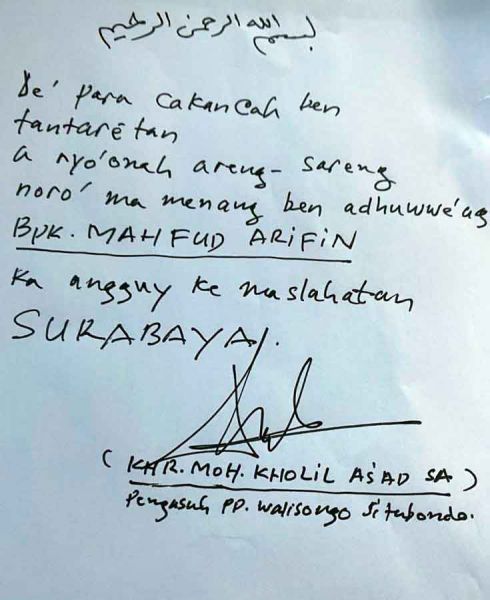 بسم الله الرحمن الرحيم
De' para cakancah ben
tantarētan
a nyo'onah areng-sareng
noro' ma menang ben adhuwwe'ag
Bpk. MAHFUD ARIFIN
Ka angguy ke maslahatan
SURABAYA.
( KHR. MOH. KHOLIL AS'AD SA )
Pengasuh PP. Walisongo Situbondo.